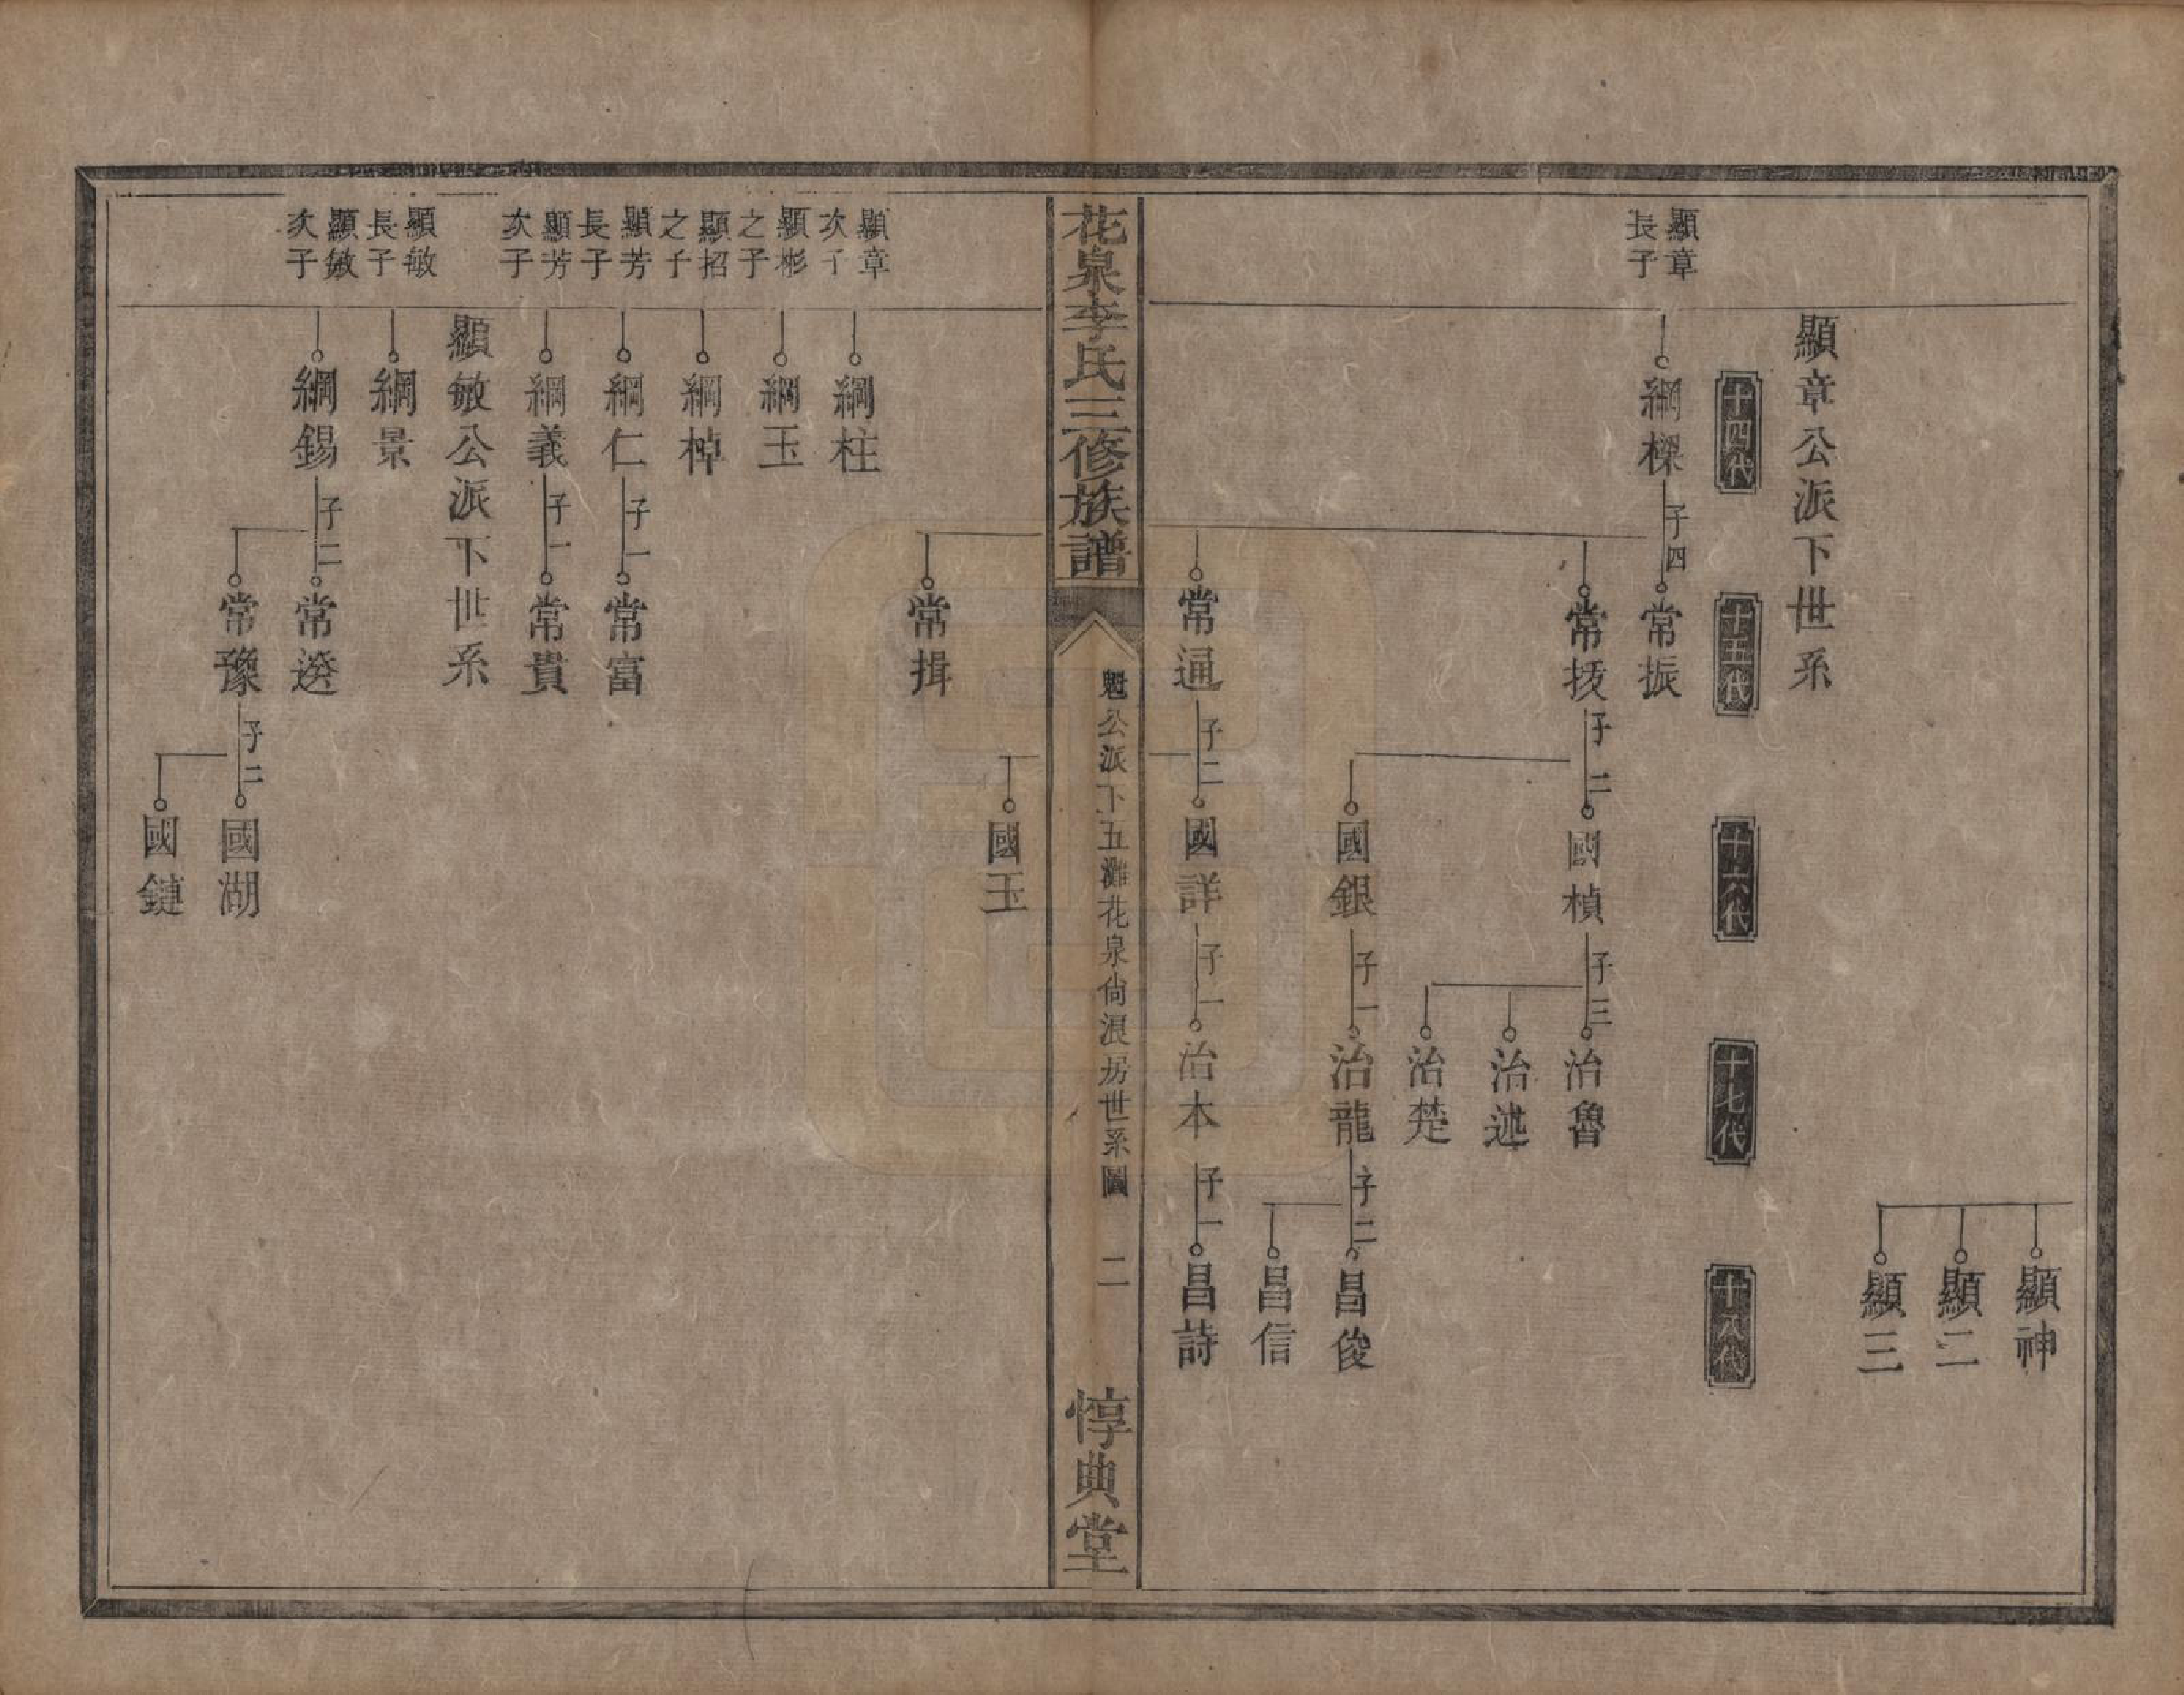 顯神
顯二
顯三
顯章公派下世系
十四代
十五代
十六代
十七代
十八代
顯章長子
綱樑 子四 常振
常拔 子二 國楨 子三 治魯
治述
治楚
國銀 子一 治龍 子二 昌俊
昌信
常通 子二 國詳 子一 治本 子一 昌詩
花泉李氏三修族譜
魁公派下五灘花泉尙浪房世系圖 二
惇典堂
國玉
常揖
顯章次子
綱柱
顯彬之子
綱玉
顯招之子
綱棹
顯芳長子
綱仁 子一 常富
顯芳次子
綱義 子一 常貴
顯敏公派下世系
顯敏長子
綱景
顯敏次子
綱錫 子二 常遜
常豫 子二 國湖
國鏈